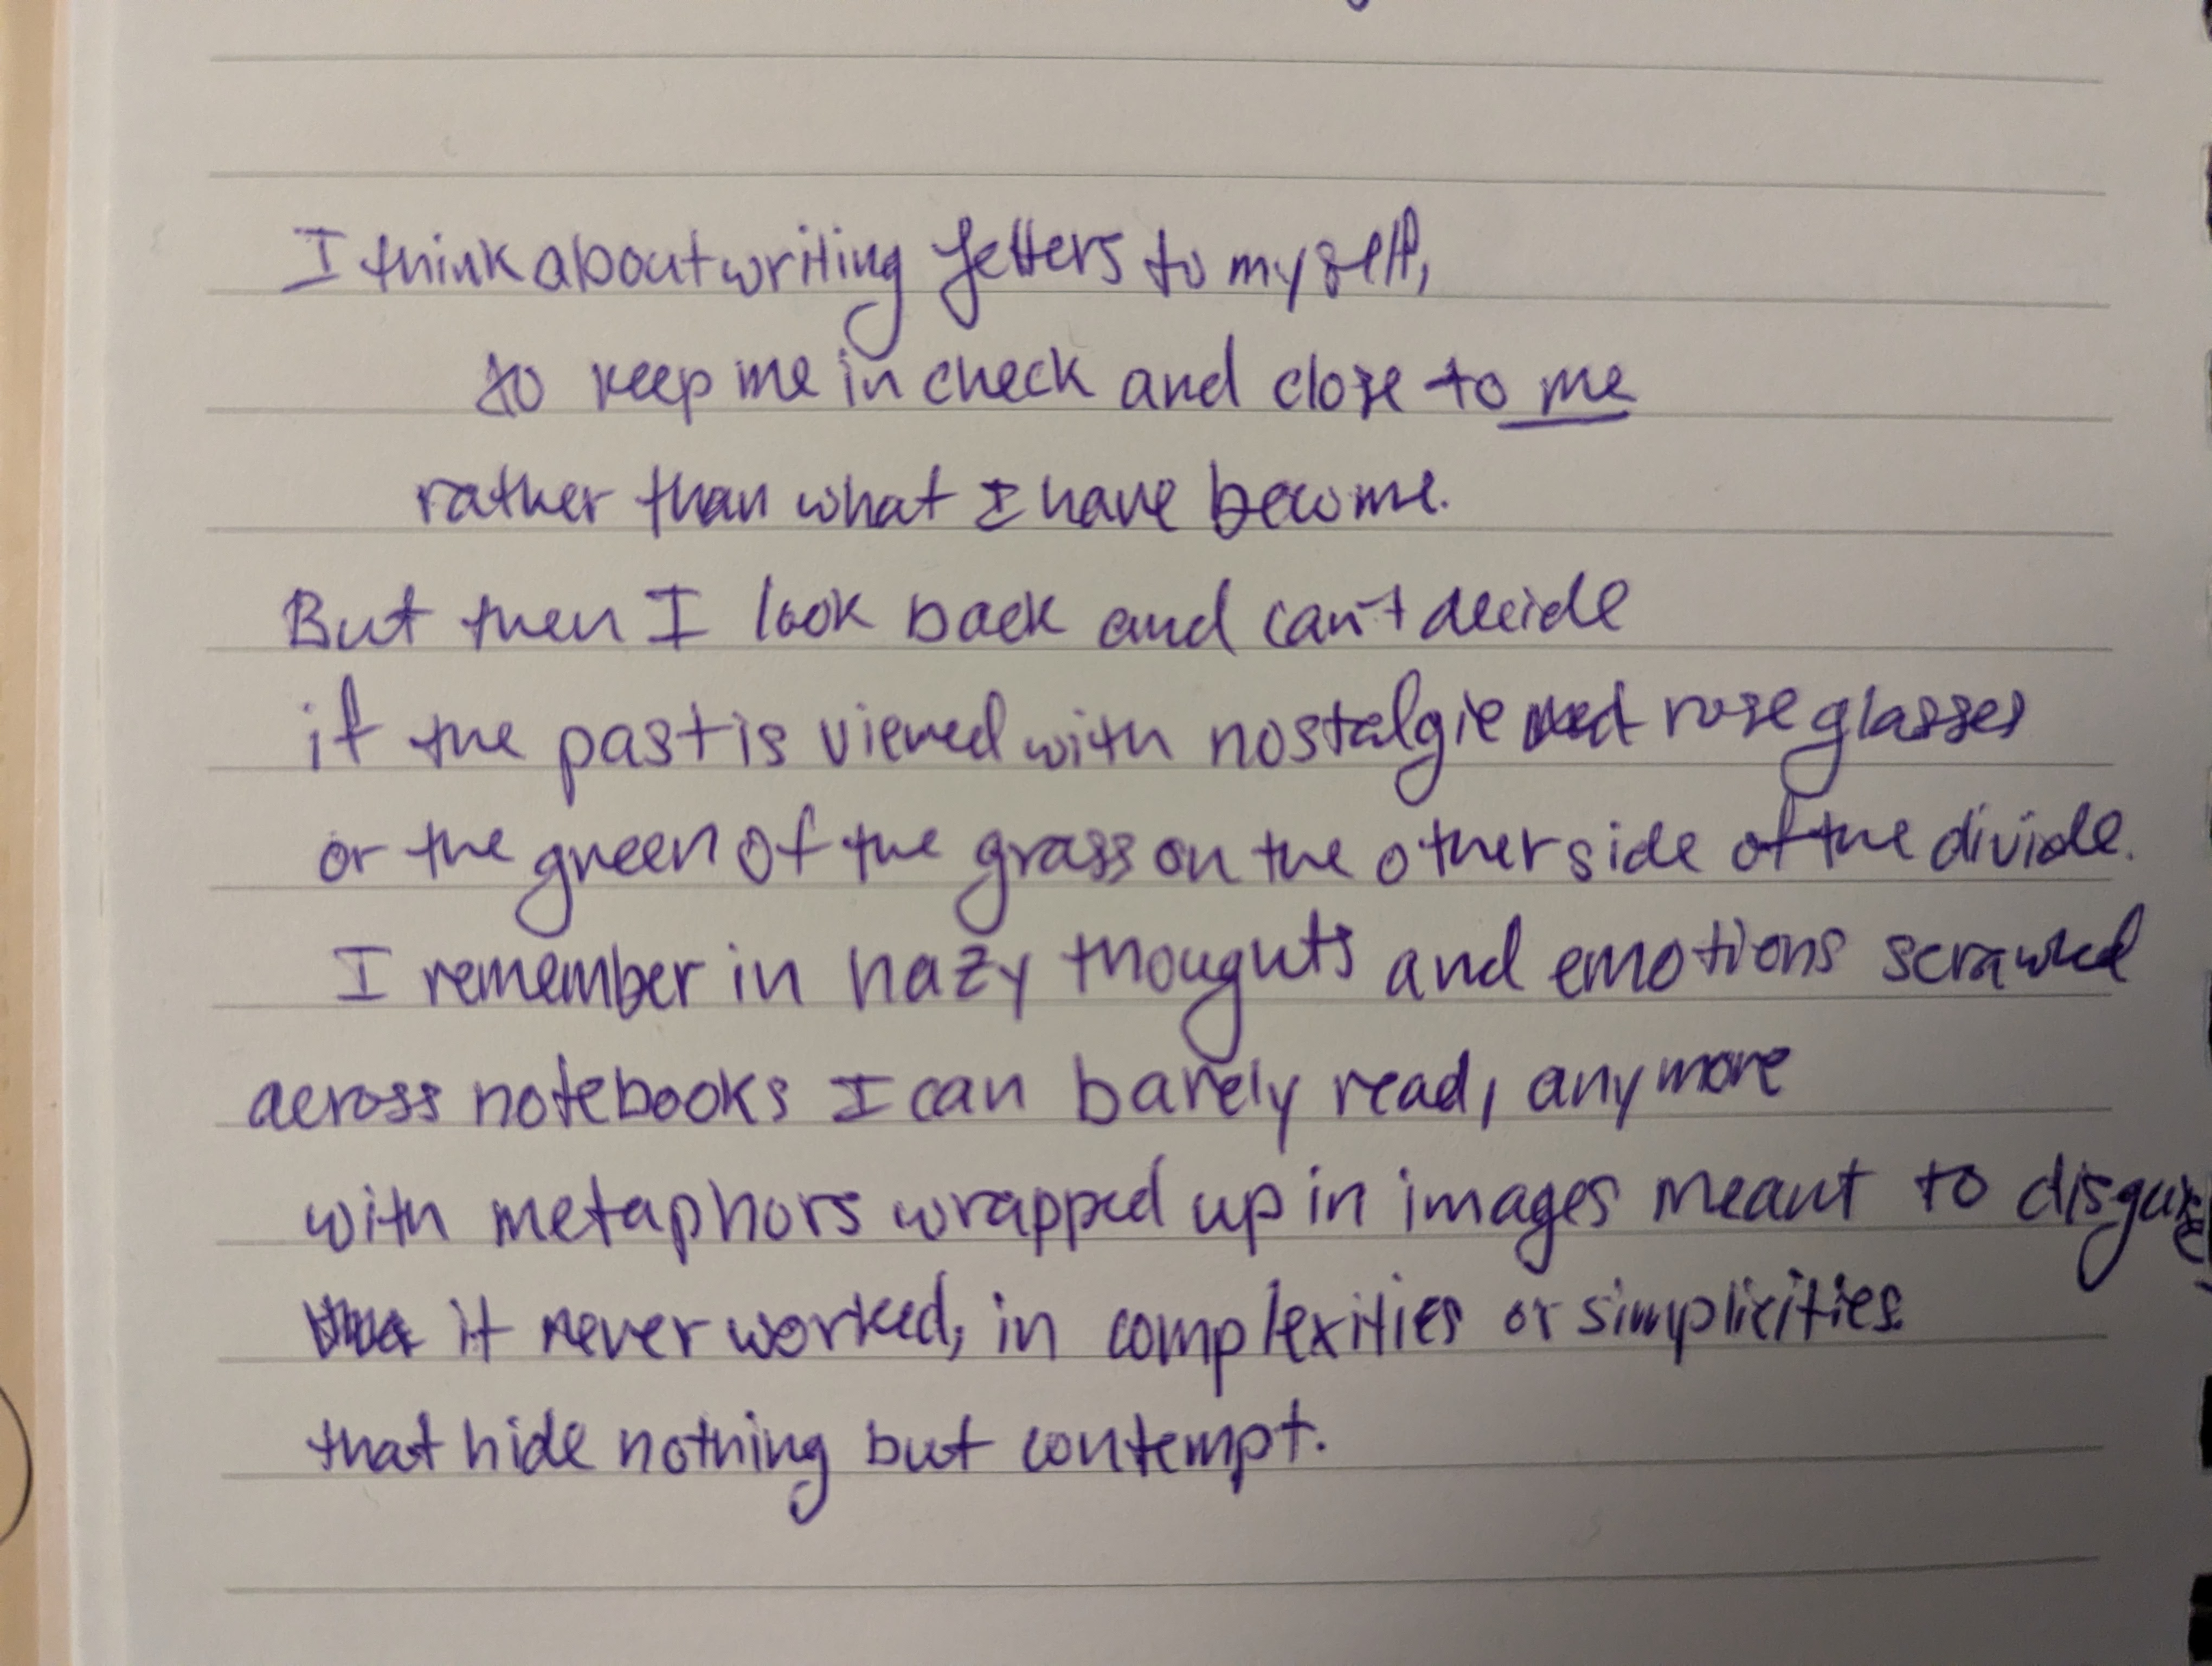 I think about writing letters to myself,
to keep me in check and close to me
rather than what I have become.
But then I look back and can't decide
if the past is viewed with nostalgic rose glasses
or the green of the grass on the other side of the divide.
I remember in hazy thoughts and emotions scrawled
across notebooks I can barely read, anymore
with metaphors wrapped up in images meant to disguise
it never worked, in complexities or simplicities
that hide nothing but contempt.